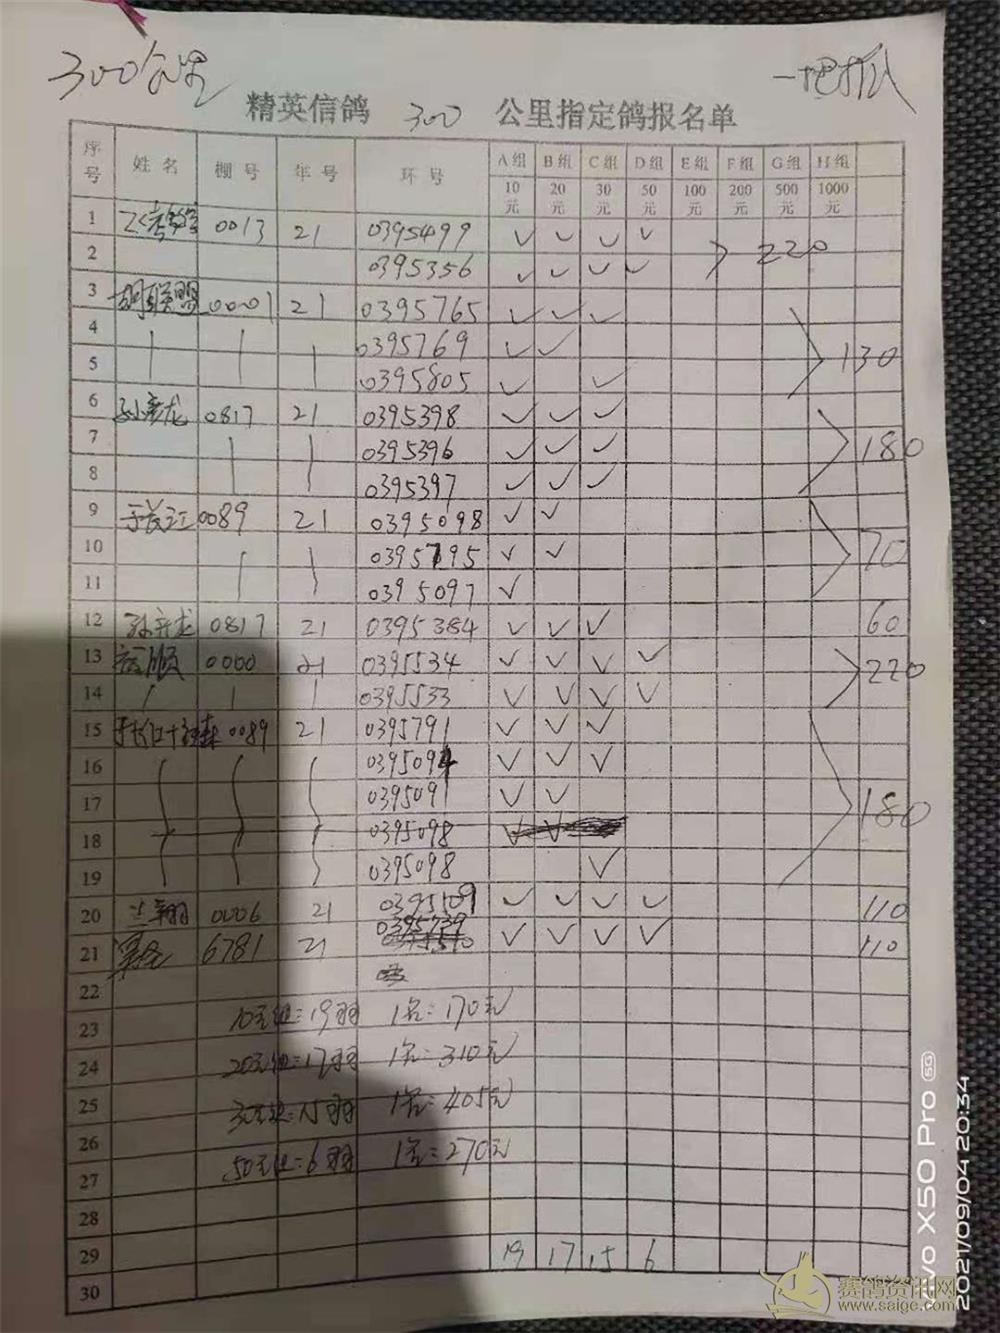 300公里
一把抓
精英信鸽 300 公里指定鸽报名单
序号 姓名 棚号 年号 环号 A组 B组 C组 D组 E组 F组 G组 H组
10元 20元 30元 50元 100元 200元 500元 1000元
1 0013 21 0395499 ✓ ✓ ✓ ✓
220
2 0395356 ✓ ✓ ✓ ✓
3 胡联盟 0001 21 0395765 ✓ ✓ ✓
4 0395769 ✓ ✓
130
5 0395805 ✓ ✓
6 0817 21 0395398 ✓ ✓ ✓
7 0395396 ✓ ✓ ✓
180
8 0395397 ✓ ✓ ✓
9 于长江 0089 21 0395098 ✓ ✓
10 0395795 ✓ ✓
70
11 0395097 ✓
12 0817 21 0395384 ✓ ✓ ✓ 60
13 0000 21 0395534 ✓ ✓ ✓ ✓
220
14 0395533 ✓ ✓ ✓ ✓
15 于长江+ 0089 21 0395791 ✓ ✓ ✓
16 0395094 ✓ ✓ ✓
17 0395091 ✓ ✓
180
18 0395098
19 0395098 ✓
20 兰翔 0006 21 0395109 ✓ ✓ ✓ ✓ 110
21 6781 21 0395739 ✓ ✓ ✓ ✓ 110
22
23 10元组:19羽 1名:170元
24 20元组:17羽 1名:310元
25 30元组:15羽 1名:405元
26
27 50元组:6羽 1名:270元
28
29 19 17 15 6
30
vivo X50 Pro 5G
2021/09/04 20:34
赛鸽资讯网
www.saige.com